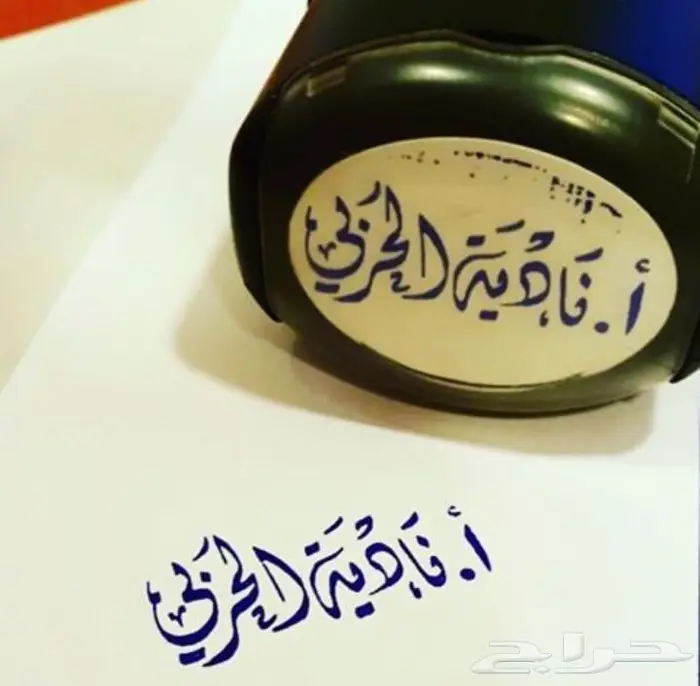 أ. نَادْيَة الحَرَبي
أ. نَادْيَة الحَرَبي
حراج